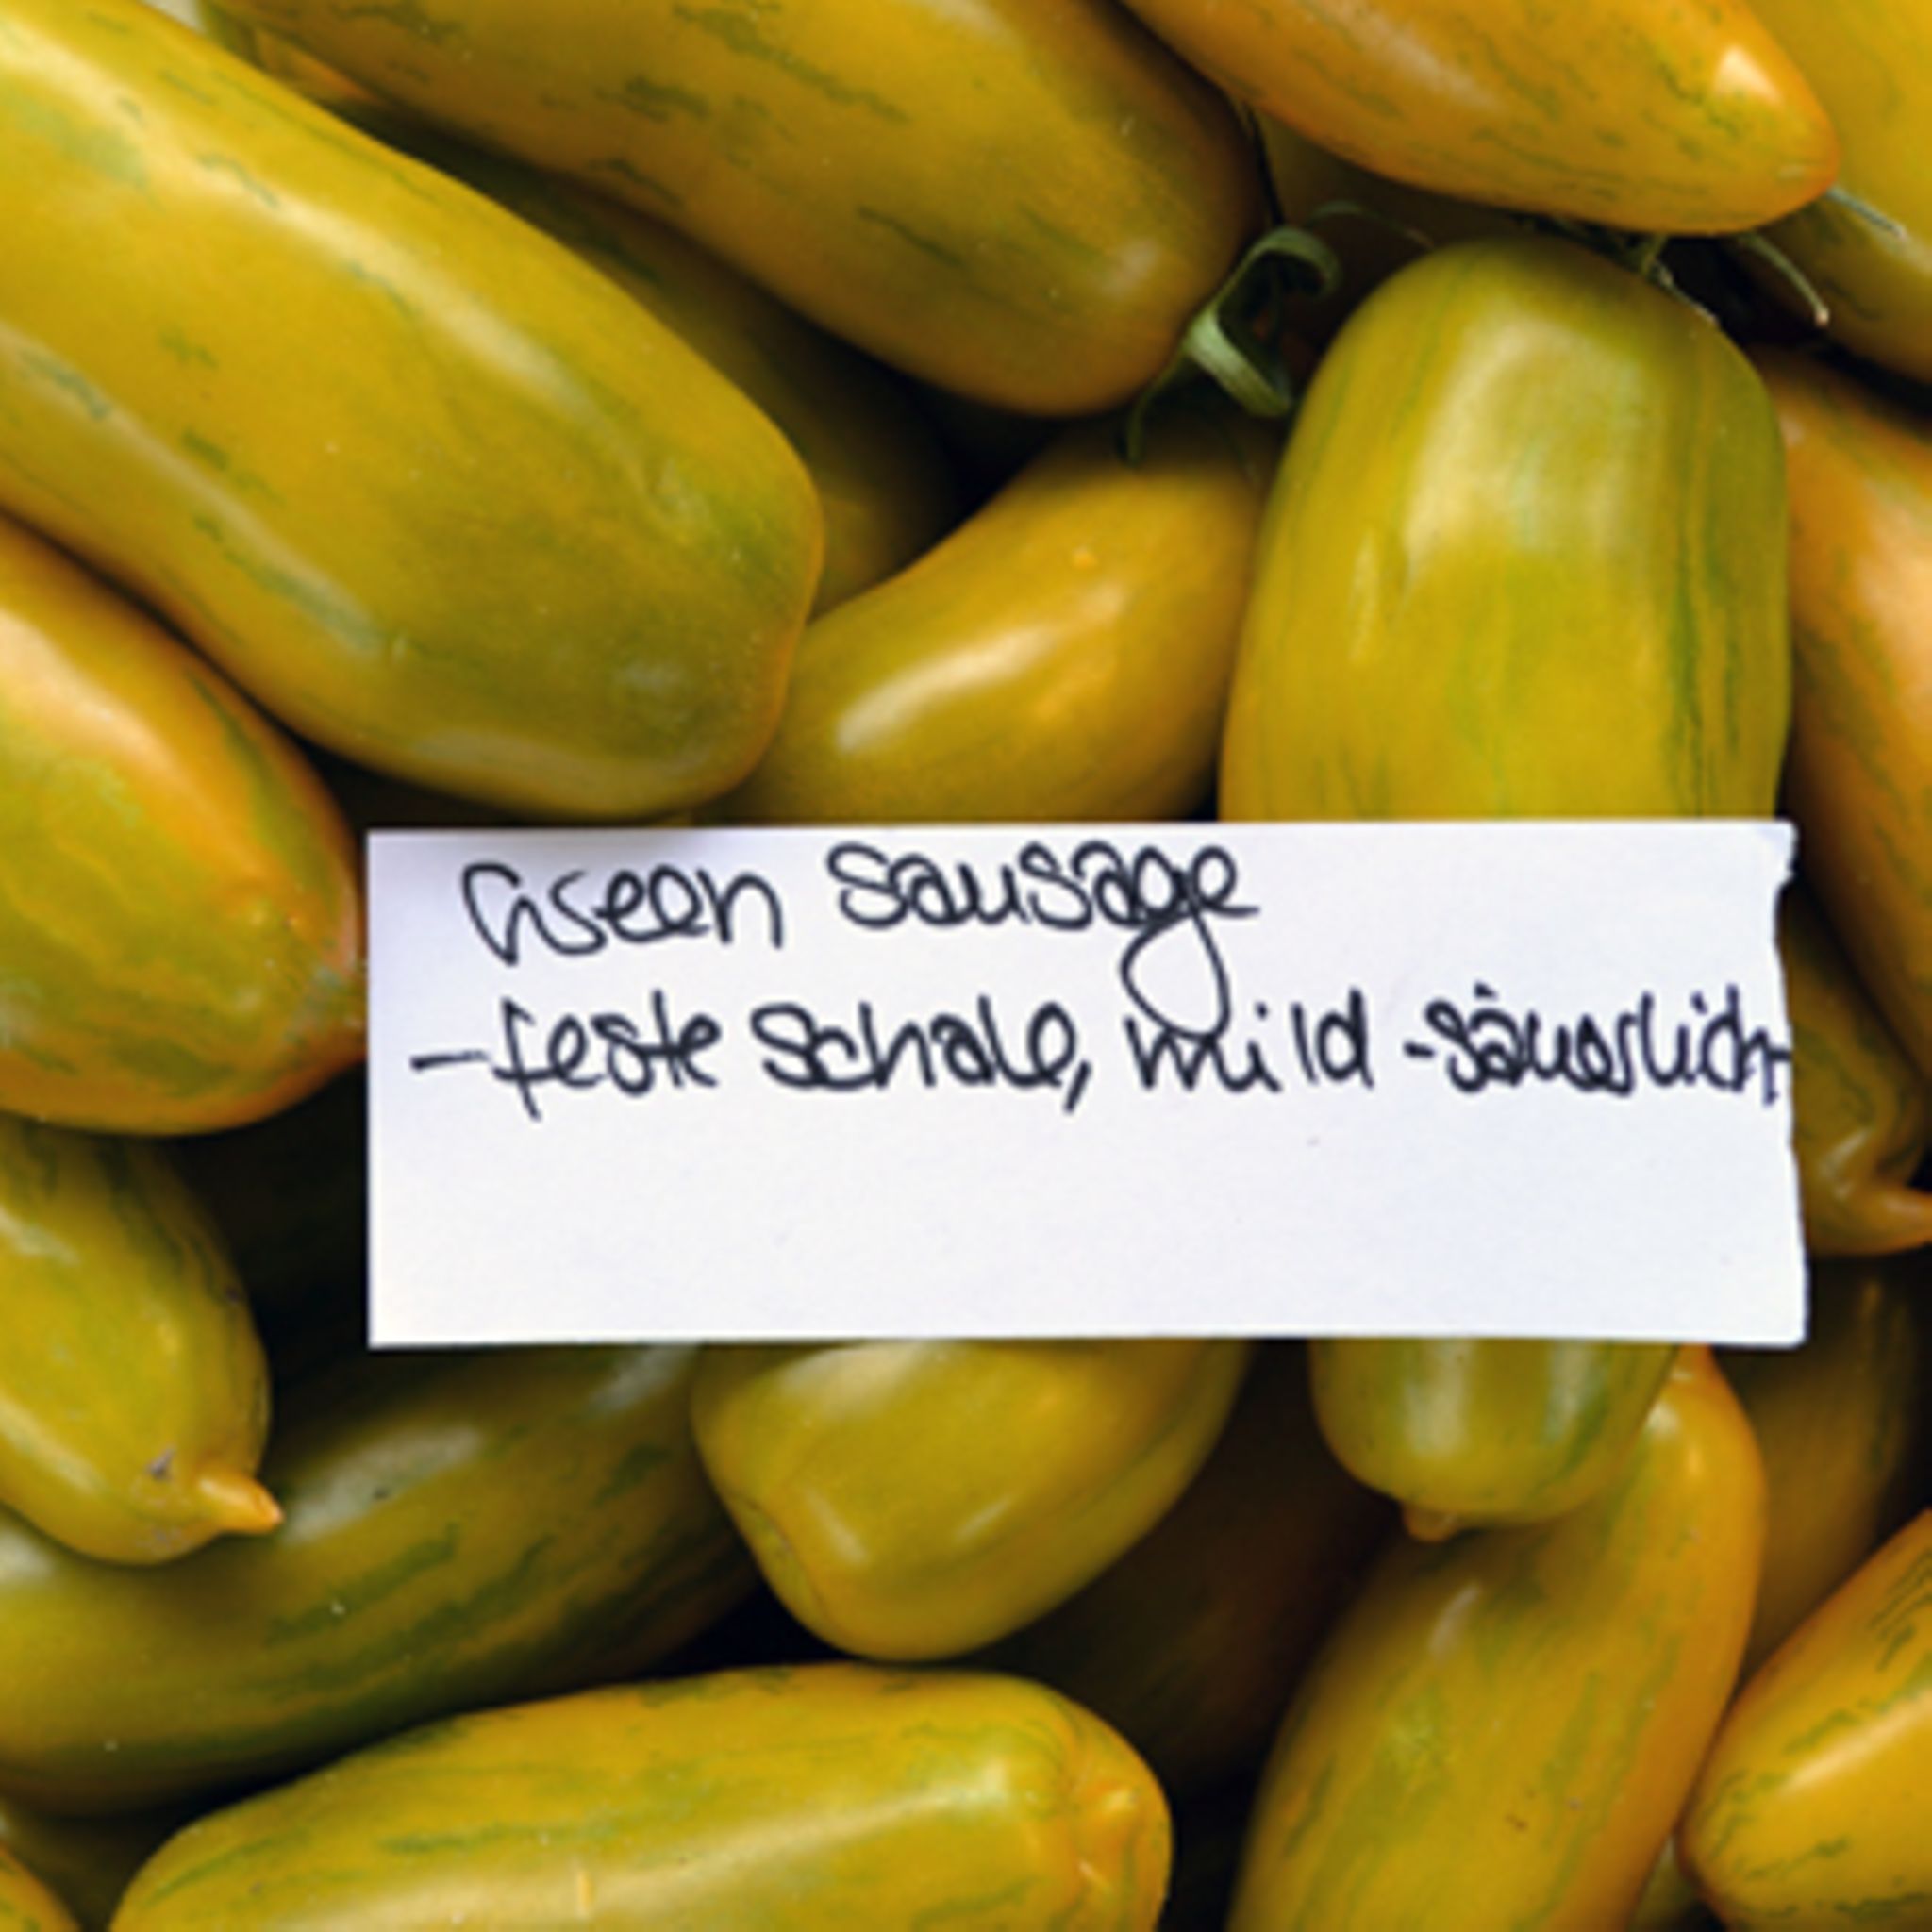 Green Sausage
- feste Schale, mild - säuerlich